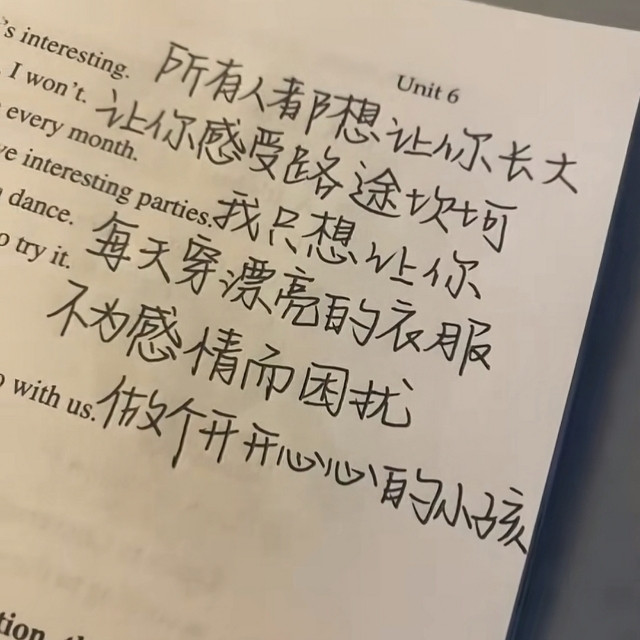 's interesting.
Unit 6
所有人都想让你长大
I won't.
让你感受路途坎坷
every month.
ve interesting parties.
我只想让你
dance.
每天穿漂亮的衣服
o try it.
不为感情而困扰
with us.
做个开开心心的小孩
tion,